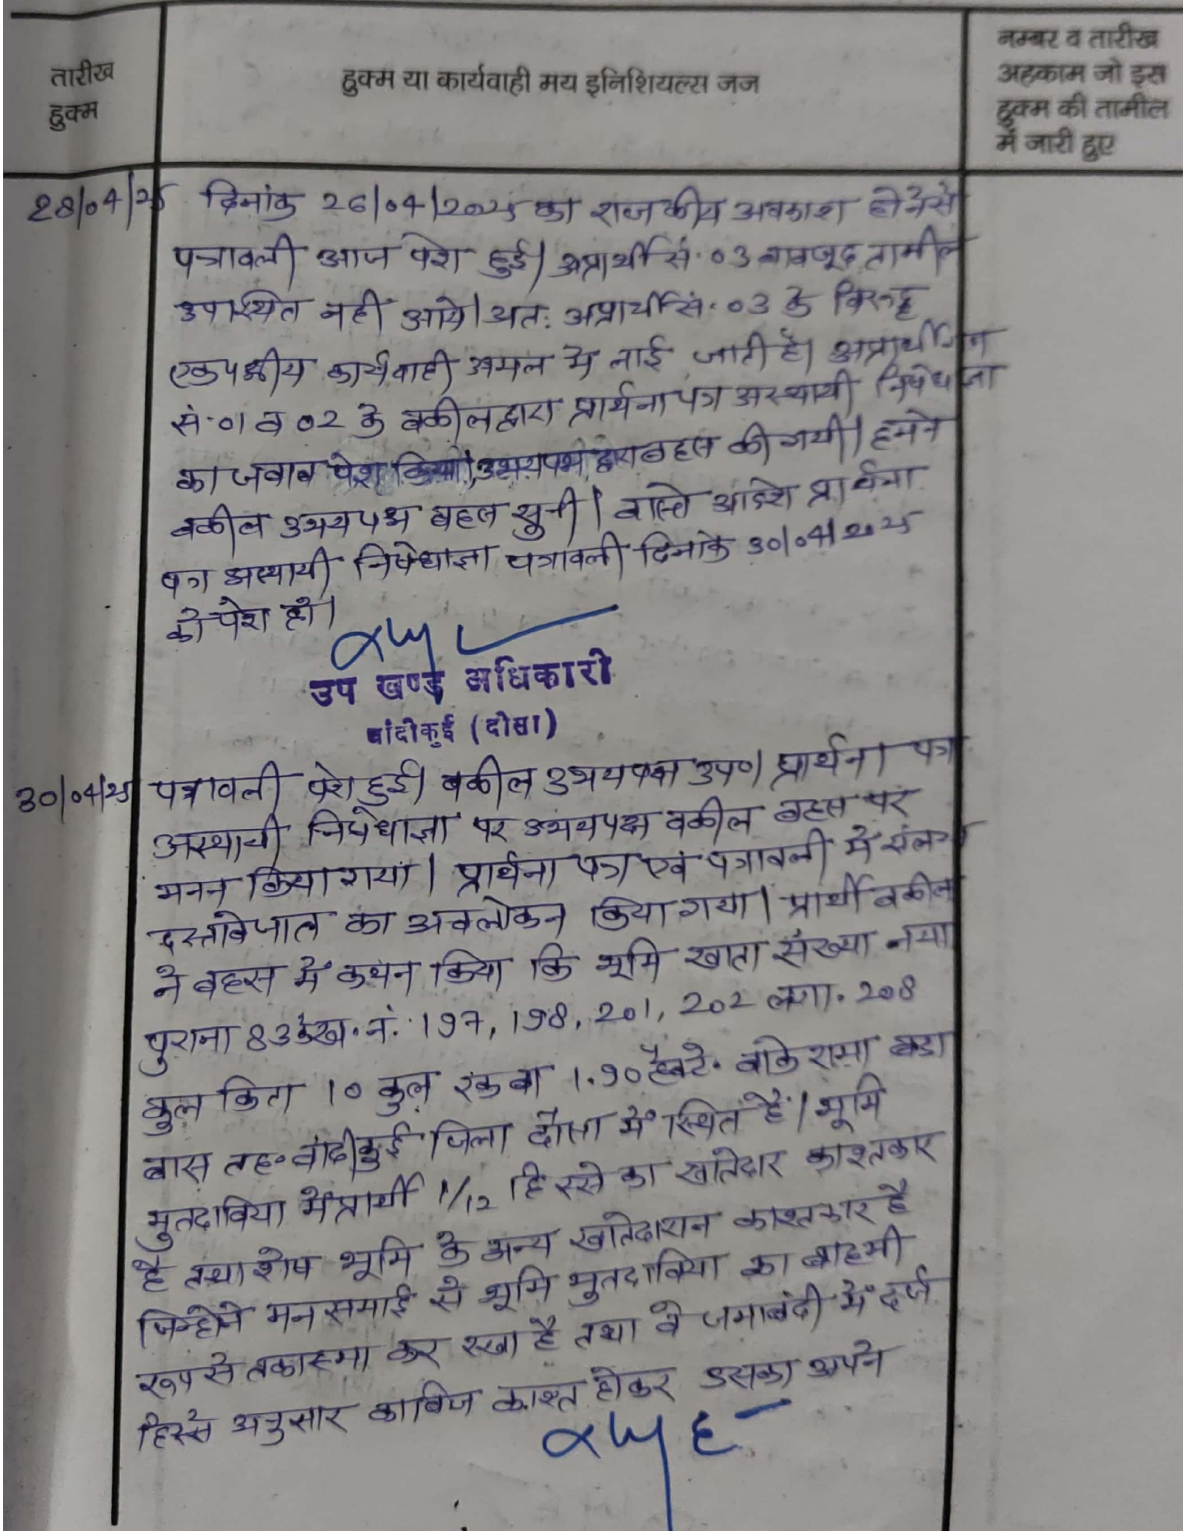 तारीख
हुक्म
हुक्म या कार्यवाही मय इनिशियल्स जज
नम्बर व तारीख
अहकाम जो इस
हुक्म की तामील
में जारी हुए
28/04/25 दिनांक 26/04/2025 का राजकीय अवकाश होनेसे
पत्रावली आज पेश हुई। अप्रार्थी सं. 03 बावजूद तामील
उपस्थित नही आये। अतः अप्रार्थी सं. 03 के विरुद्ध
एकपक्षीय कार्यवाही अमल मे लाई जाती है। अप्रार्थीगण
सं. 01 व 02 के वकील द्वारा प्रार्थना पत्र अस्थायी निषेधाज्ञा
का जवाब पेश किया। उभयपक्ष द्वारा बहस की गयी। हमने
वकील उभयपक्ष बहस सुनी। वास्ते आदेश प्रार्थना
पत्र अस्थायी निषेधाज्ञा पत्रावली दिनांक 30/04/2025
को पेश हो।
उप खण्ड अधिकारी
बांदीकुई (दौसा)
30/04/25 पत्रावली पेश हुई। वकील उभयपक्ष उप०। प्रार्थना पत्र
अस्थायी निषेधाज्ञा पर उभयपक्ष वकील बहस पर
मनन किया गया। प्रार्थना पत्र एवं पत्रावली मे संलग्न
दस्तावेजात का अवलोकन किया गया। प्रार्थी वकील
ने बहस में कथन किया कि भूमि खाता संख्या नया
पुराना 83 के ख. नं. 197, 198, 201, 202 लगा. 208
कुल किता 10 कुल रकबा 1.90 हैक्टे. वाके ग्राम बडा
बास तह. बांदीकुई जिला दौसा में स्थित है। भूमि
मुतदाविया में प्रार्थी 1/12 हिस्से का खातेदार काश्तकार
है तथा शेष भूमि के अन्य खातेदारान काश्तकार है
जिन्होने मन समाई से भूमि मुतदाविया का बाहमी
रूप से तकासमा कर रखा है तथा वे जमाबंदी में दर्ज
हिस्से अनुसार काबिज काश्त होकर उसका अपने